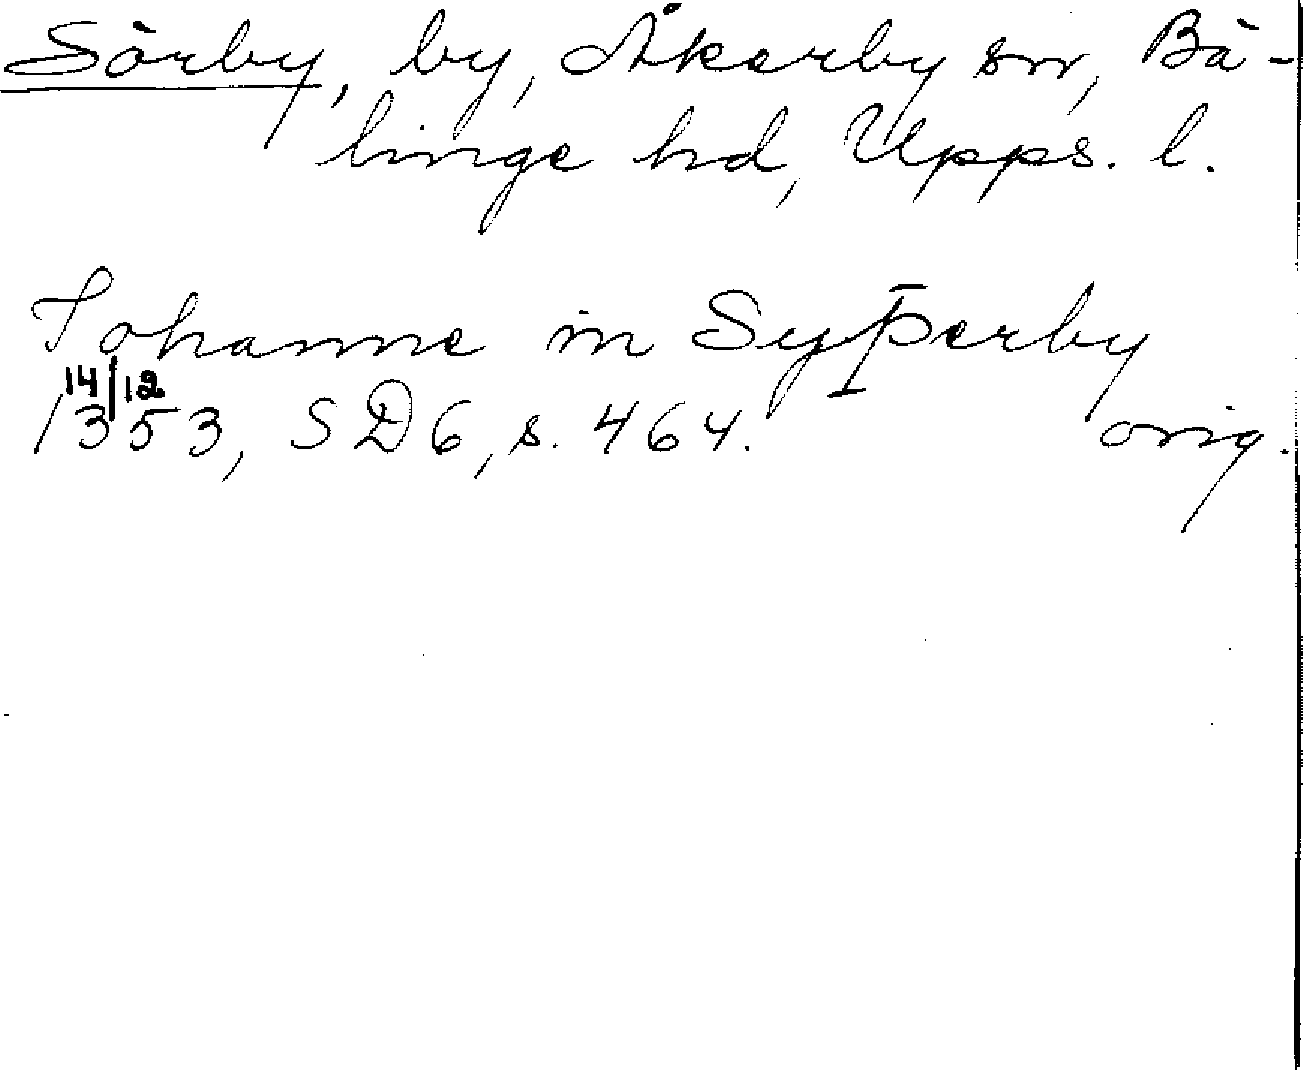 Sörby, by, Åkerby sn, Bä-
linge hd, Upps. l.
Johanne in Syþerby
14/12
1353, SD6, s. 464. orig.